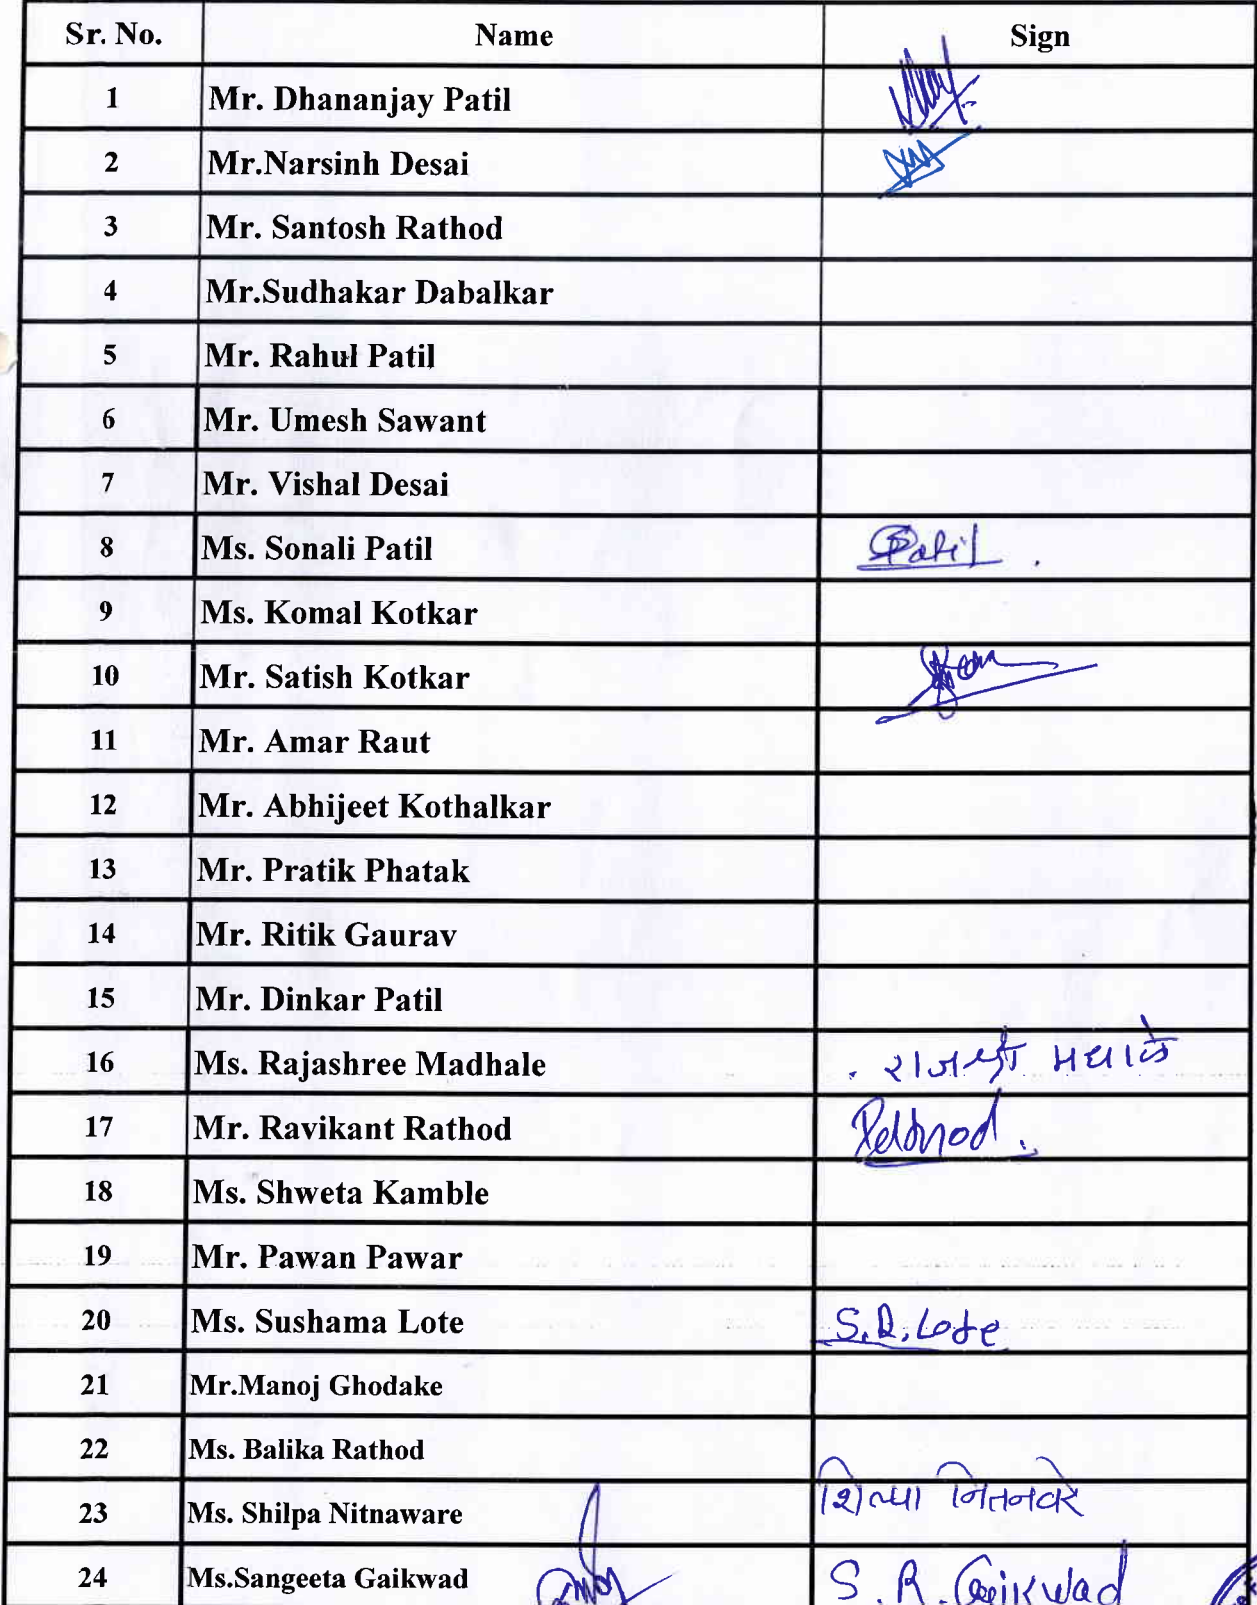 Sr. No. Name Sign
1 Mr. Dhananjay Patil
2 Mr.Narsinh Desai
3 Mr. Santosh Rathod
4 Mr.Sudhakar Dabalkar
5 Mr. Rahul Patil
6 Mr. Umesh Sawant
7 Mr. Vishal Desai
8 Ms. Sonali Patil SPatil
9 Ms. Komal Kotkar
10 Mr. Satish Kotkar
11 Mr. Amar Raut
12 Mr. Abhijeet Kothalkar
13 Mr. Pratik Phatak
14 Mr. Ritik Gaurav
15 Mr. Dinkar Patil
16 Ms. Rajashree Madhale राजश्री मधाळे
17 Mr. Ravikant Rathod
18 Ms. Shweta Kamble
19 Mr. Pawan Pawar
20 Ms. Sushama Lote S.R.Lote
21 Mr.Manoj Ghodake
22 Ms. Balika Rathod
23 Ms. Shilpa Nitnaware शिल्पा नितनवरे
24 Ms.Sangeeta Gaikwad S.R.Gaikwad